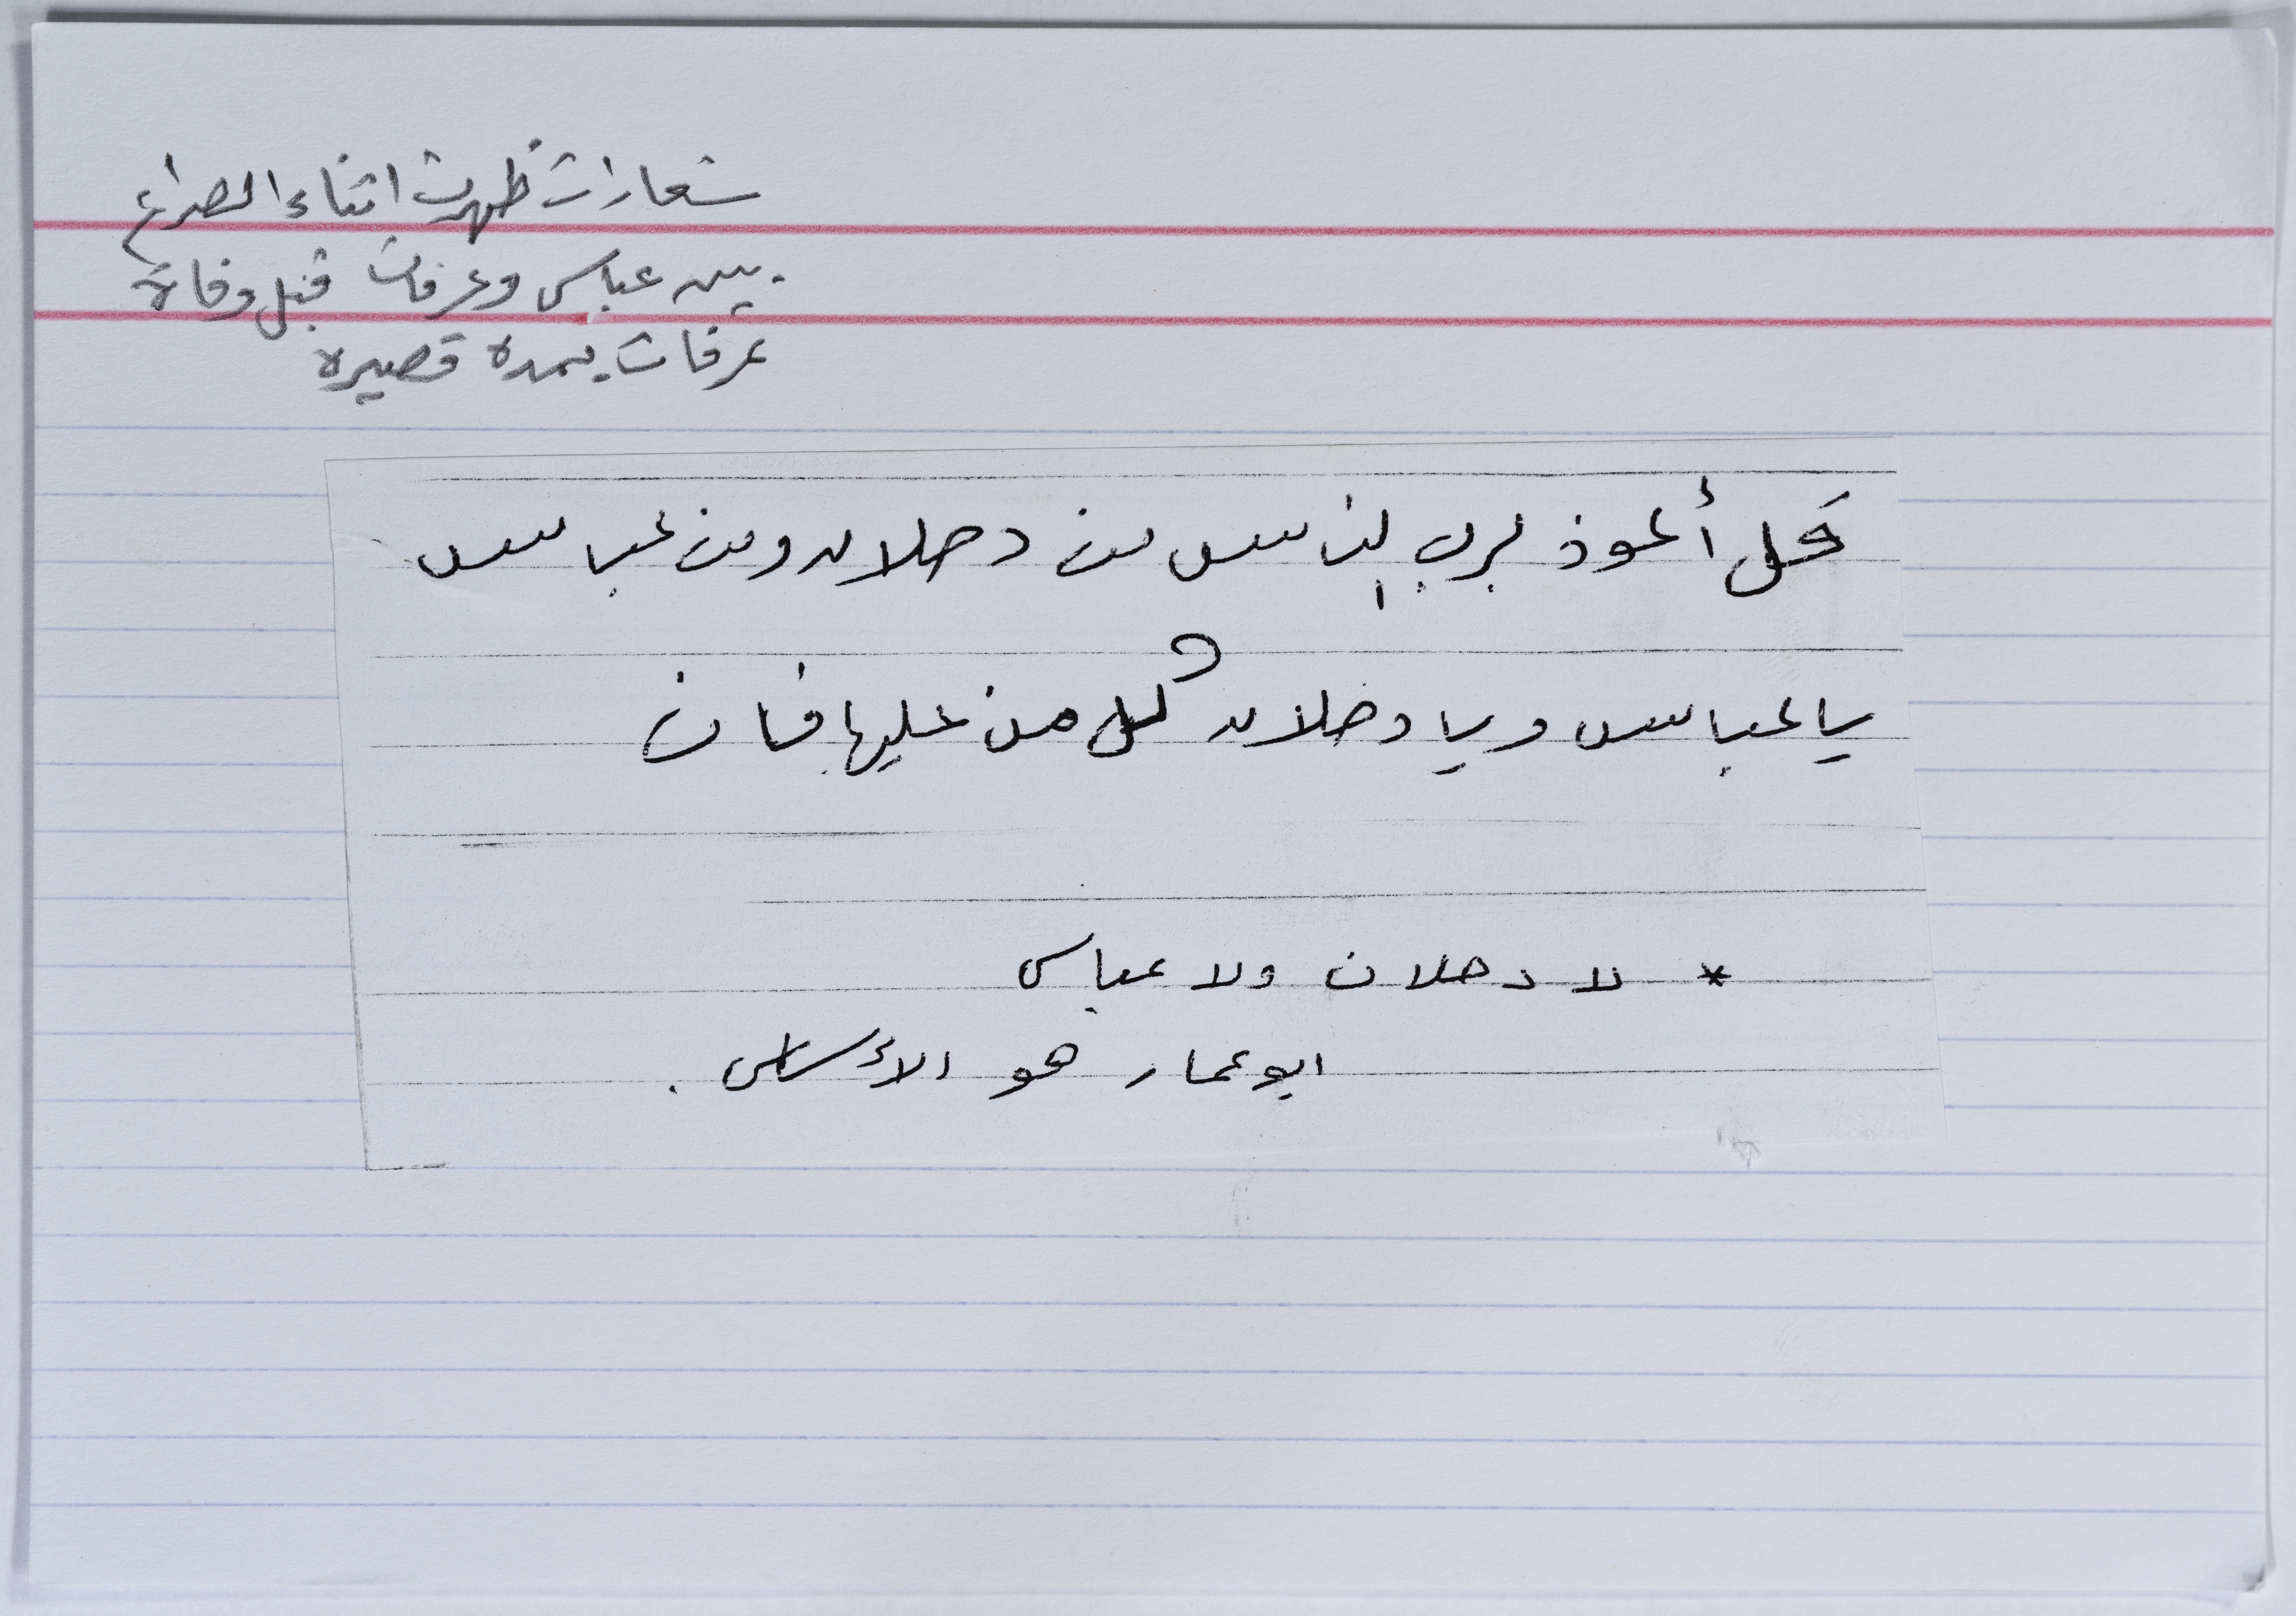 شعارات ظهرت اثناء الصراع
بين عباس وعرفات قبل وفاة
عرفات بمدة قصيرة
قل أعوذ برب الناس من دحلان ومن عباس
يا عباس ويا دحلان كل من عليها فان
* لا دحلان ولا عباس
ابو عمار هو الأساس .